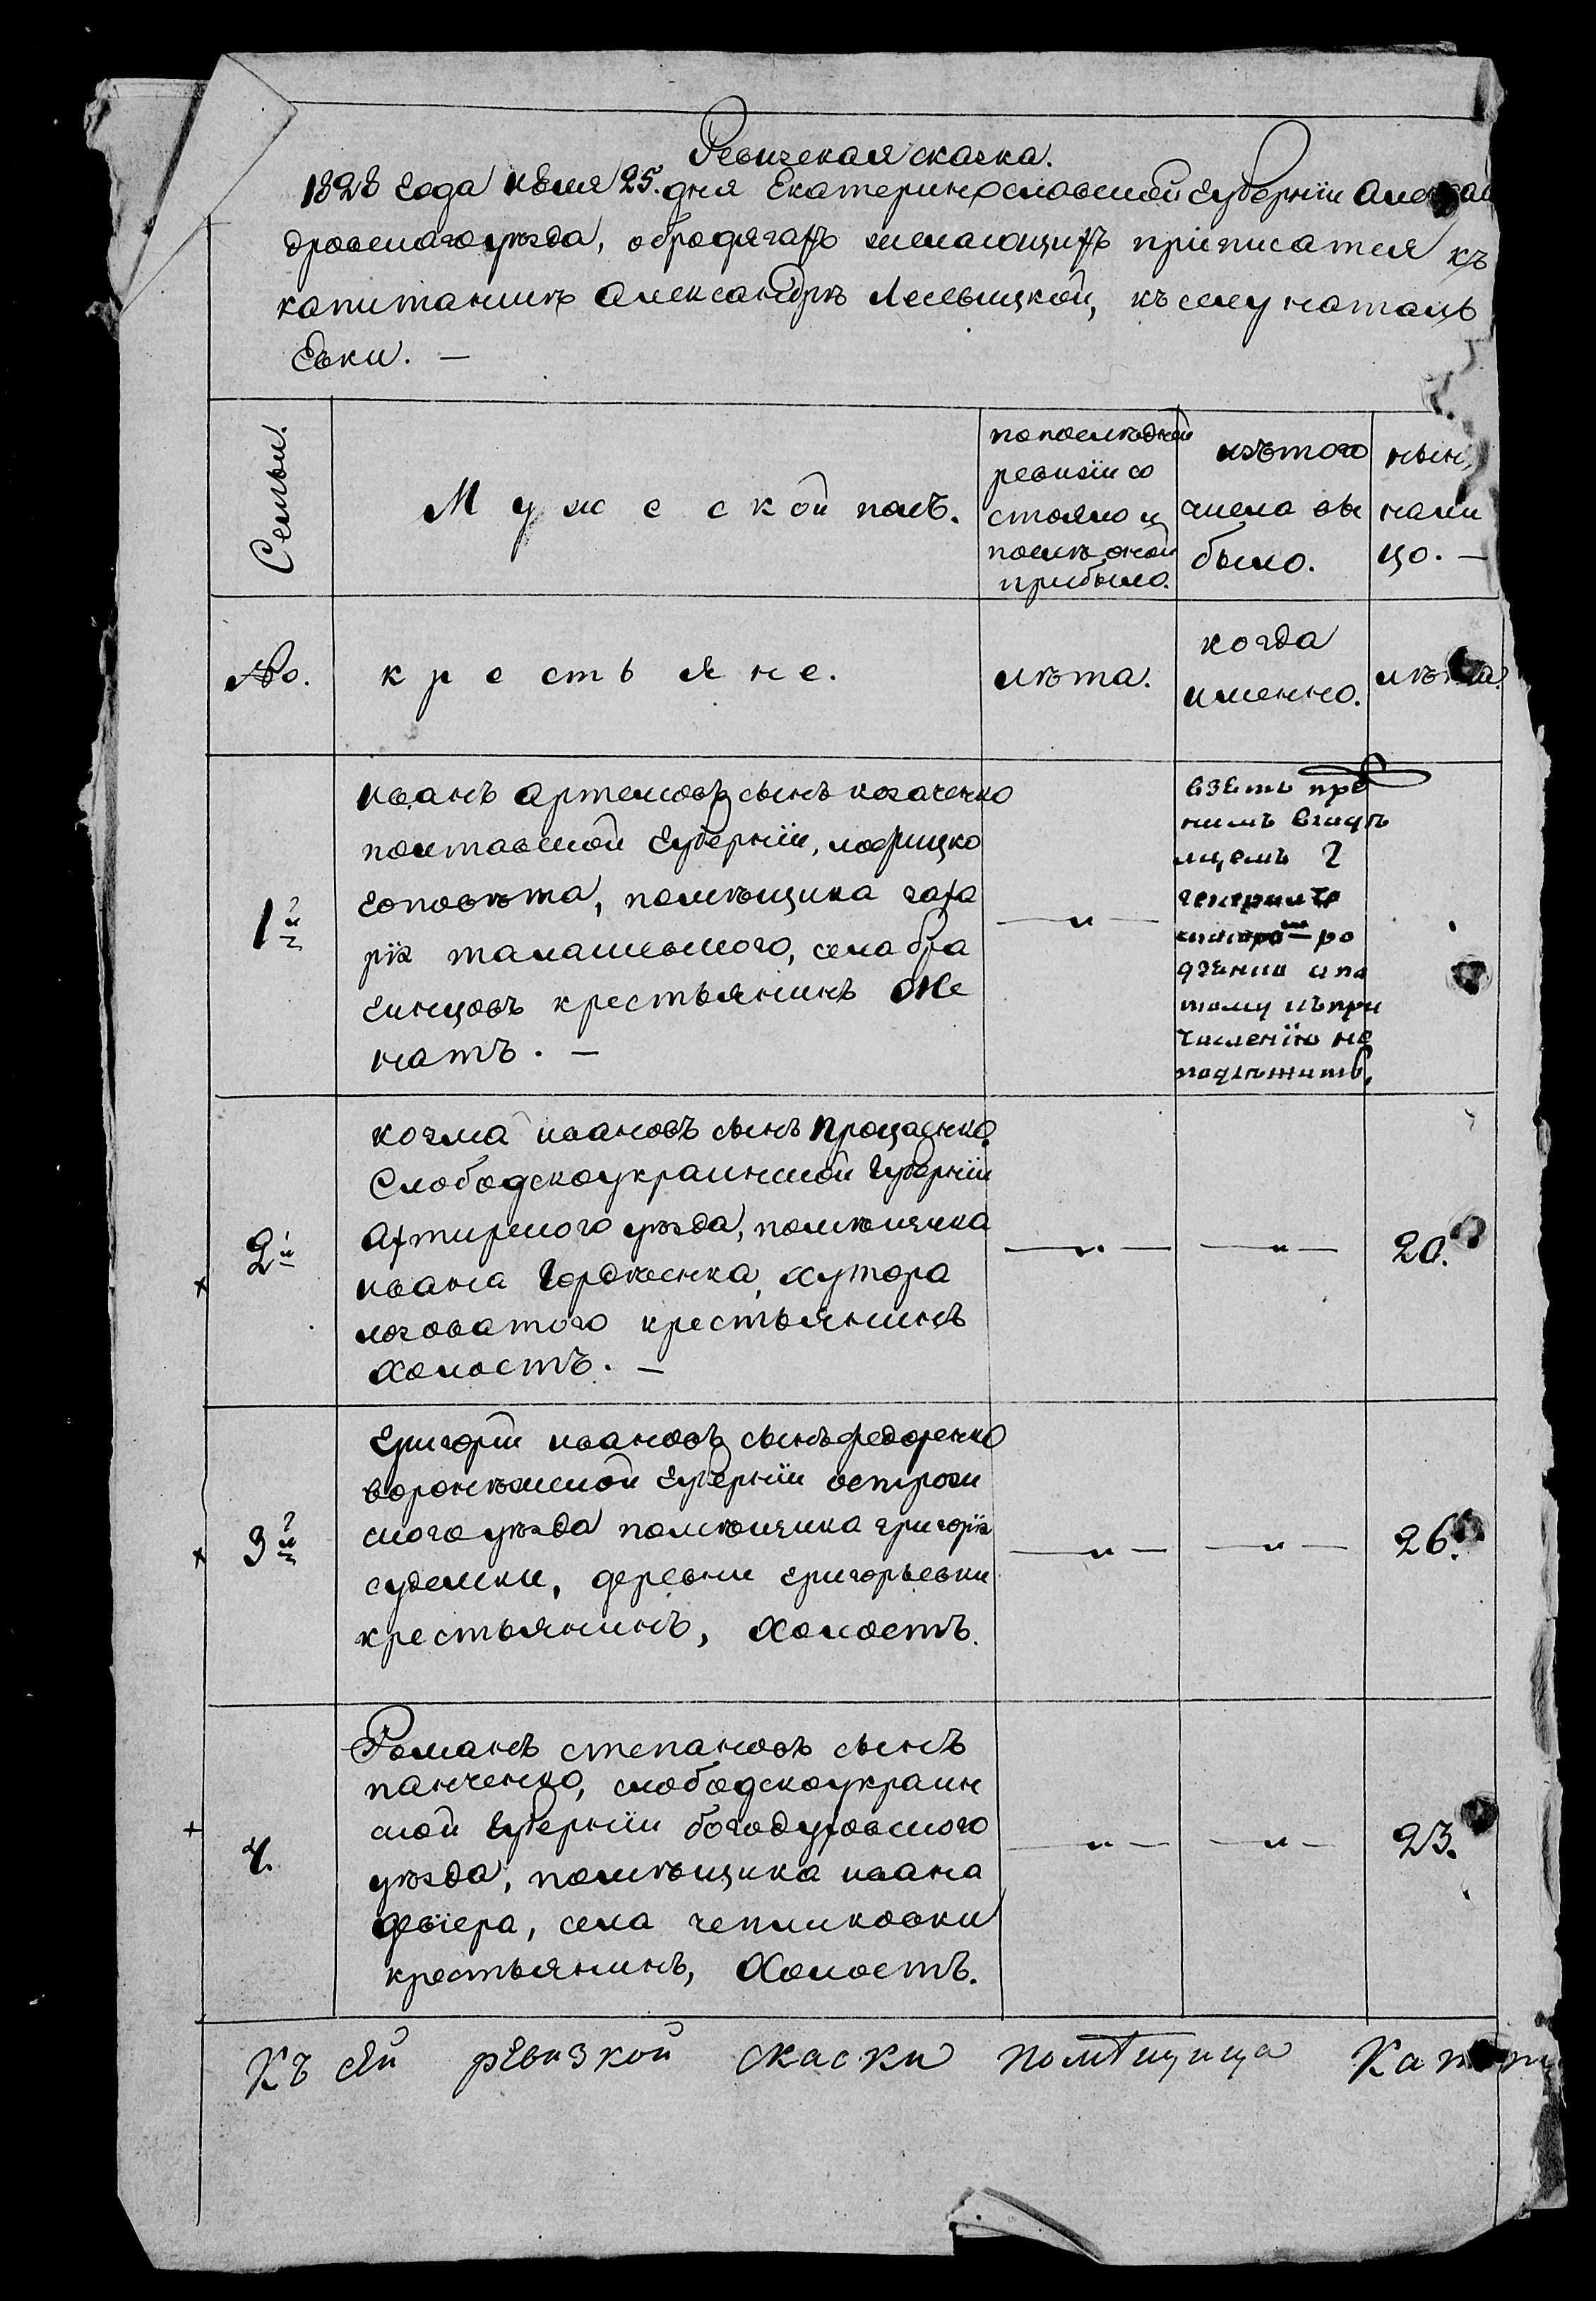 Ревизская сказка.
1828 года июля 25. дня Екатеринославской губернiи Алексан
дровского уезда, обродягахъ желающихъ прiписатся къ
капитаншѣ Александрѣ Лесевицкой, къ селу наталь
евки. —
Семьи.
Мужеской полъ.
попоследней
ревизiи со
стояло и
послѣ оной
прибыло.
изътого
числа вы
было.
нын
нали
цо. —
№.
крестьяне.
лѣта.
когда
именно.
лѣта.
1й
иванъ артемовъ сынъ козаченко
полтавской губернiи, лохвицко
го повѣта, помѣщика заха
рiя талашевского, села бра
гинцовъ крестьянинъ же
натъ. —
— „ —
взятъ пре
нимъ
генерала
ро
и по
тому къ при
численiю не
подлѣжитъ.
2й
козма ивановъ сынъ Проценко
Слободскоукраинской губернiи
ахтирского уѣзда, помѣщика
ивана Гордѣенка, хутора
лозоватого крестьянинъ
холостъ. —
— „ —
— „ —
20.
3й
григорiй ивановъ сынъ федоренко
воронѣжской губернiи острож
ского уѣзда помѣщика григорiя
, деревни григорьевки
крестьянинъ, холостъ.
— „ —
— „ —
26.
4.
Романъ степановъ сынъ
панченко, слободскоукраин
ской губернiи богодуховского
уѣзда, помѣщика ивана
девiера, села
крестьянинъ, холостъ.
— „ —
— „ —
23.
Къ сей ревизкой скаски помѣщица Капит